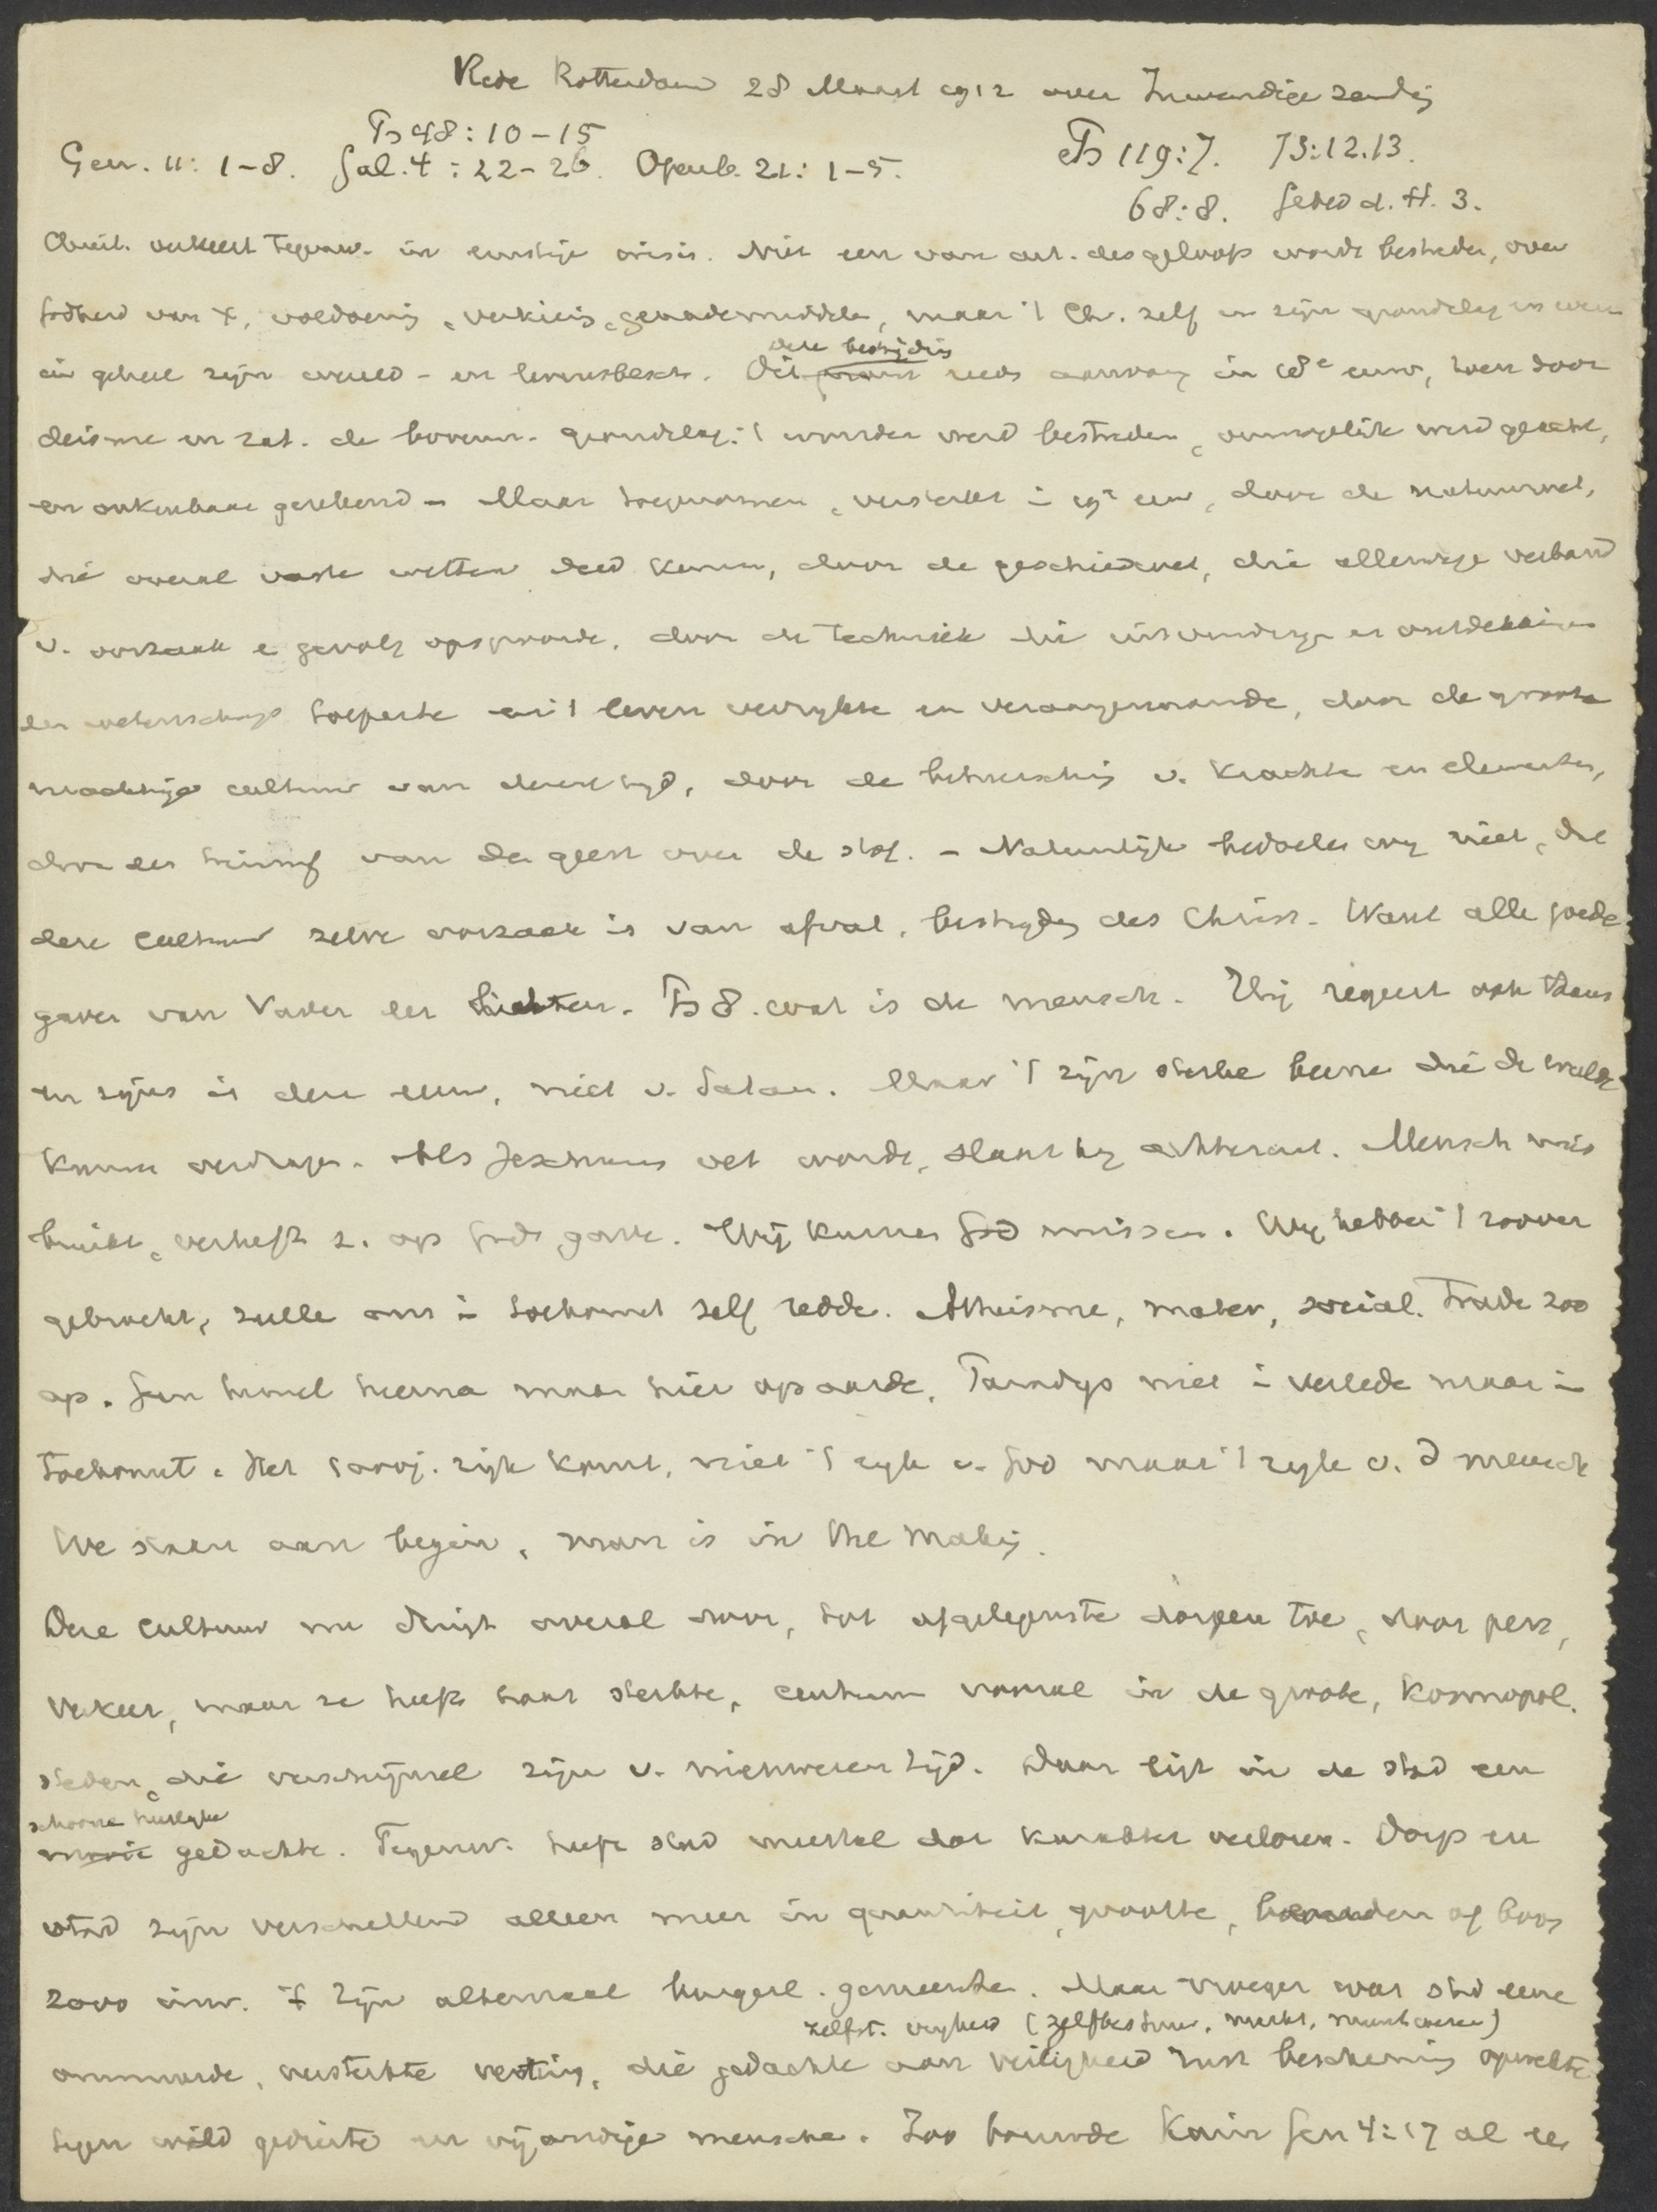 Rede Rotterdam 28 Maart 1912 over Inwendige zendig
Ps 48:10-15
Gen. 11: 1-8. Gal. 4: 22-26. Openb. 21: 1-5.
Ps 119:7. 73:12.13.
68:8. Gebed d. H. 3.
Christ. verkeert tegenw. in ernstige crisis. Niet een van art. des geloofs wordt bestreden, over
Godheid van X, voldoening, verkiezing, genademiddelen, maar 't Chr. zelf in zijn grondslag en wezen
in geheel zijn wereld- en levensbesch.
deze bestrijding
reeds aanvang in 18e eeuw, toen door
deisme en rat. de bovenn. grondslag, 't wonder werd bestreden, onmogelijk werd geacht,
en onkenbaar gerekend - Maar toegenomen, versterkt i 19e eeuw, door de natuurwet,
die overal vaste wetten deed kennen, door de geschiedwet, die allerwege verband
v. oorzaak e gevolg opspoorde, door de techniek die uitvindinge en ontdekkingen
der wetenschap toepaste en 't leven verrijkte en veraangenaamde, door de groote
machtige cultuur van dezen tijd, door de beheersching v. krachte en elementen,
door den triumf van den geest over de stof. - Natuurlijk bedoelen wy niet, dat
deze cultuur zelve oorzaak is van afval, bestryding des Christ. Want alle goede
gaven van Vader der lichten. Ps 8. wat is de mensch. Hij regeert ook thans
en zyns is deze eeuw, niet v. Satan. Maar 't zijn sterke beene die de weelde
kunne verdrage. Als Jeschurun vet wordt, slaat hy achteruit. Mensch mis
bruikt, verheft z. op Gods gave. Wij kunnen God missen. Wy hebben 't zoover
gebracht, zulle ons i toekomst zelf redde. Atheisme, mater, social. Trade zoo
op. Geen hemel hierna maar hier op aarde. Paradys niet i verlede maar i
toekomst. Het rijk komt, niet 't ryk v. God maar 't ryk v. d mensch
We staan aan begin, man is in the making.
Deze cultuur nu dringt overal door, tot afgelegenste dorpen toe, door pers,
verkeer, maar ze heeft haar sterkte, centrum vooral in de groote, kosmopol.
steden, die verschijnsel zijn v. nieuweren tijd. Daar ligt in de stad een
schoone heerlyke
mooie gedachte. Tegenw. heeft stad meestal dat karakter verloren. Dorp en
stad zijn verschillend alleen meer in quantiteit, grootte, beneden of boven
2000 inw. 't Zijn altemaal burgerl. gemeente. Maar vroeger was stad eene
zelfst. vryheid (zelfbestuur, markt, muntwezen)
ommuurde, versterkte vesting, die gedachte aan veiligheid rust bescherming opwekte
tegen wild gedierte en vijandige mensche. Zoo bouwde Kain Gen 4:17 al een